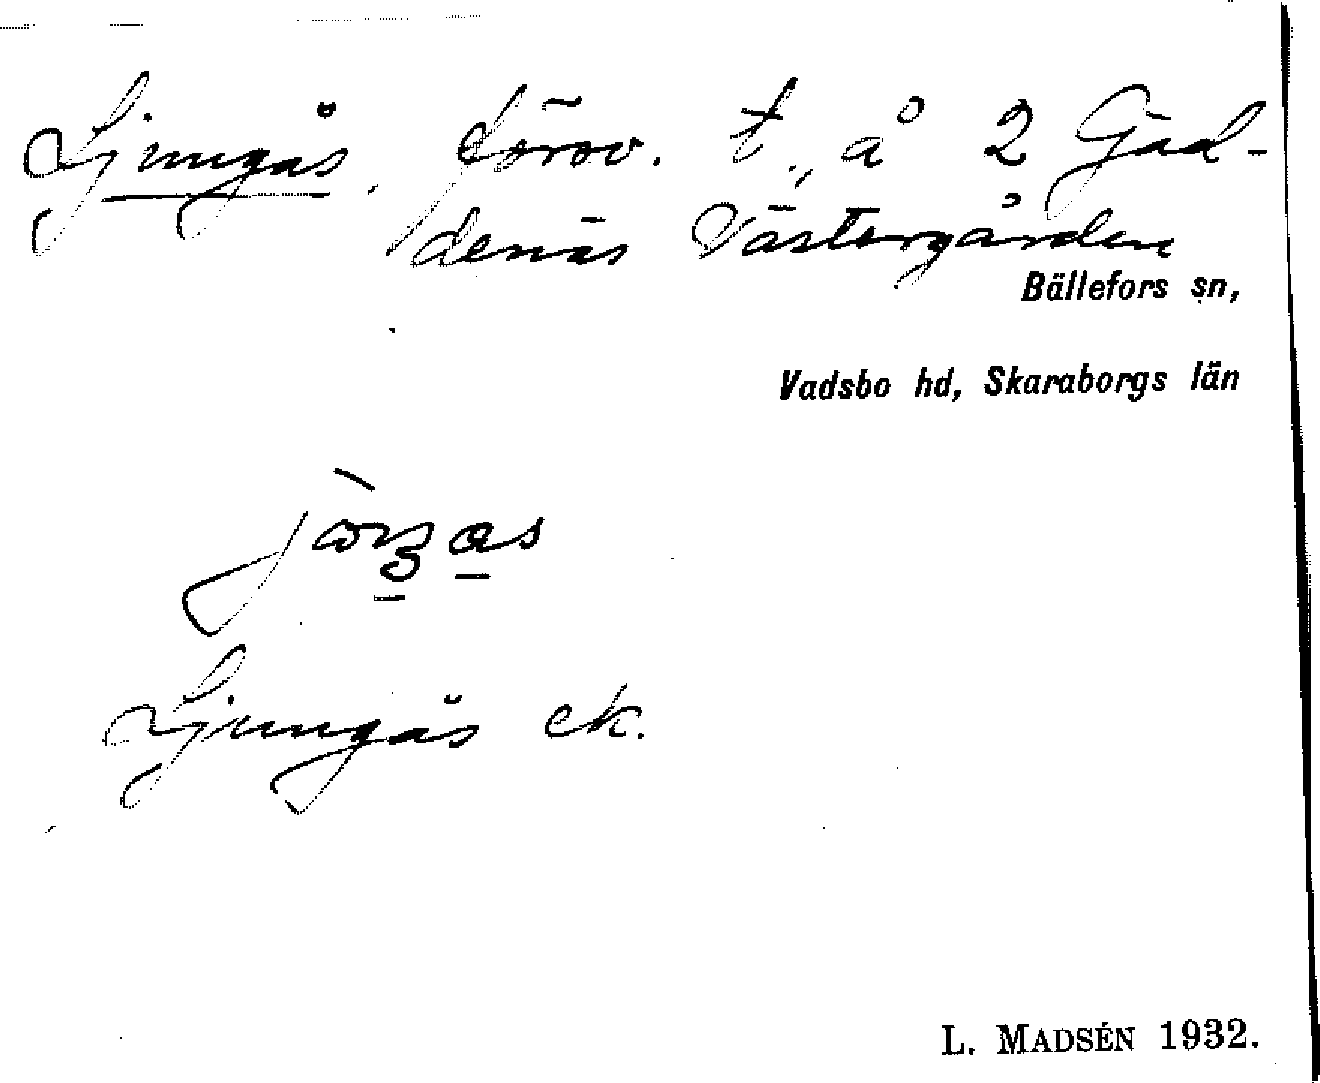 Ljungås, förov. t., å 2 Gäd-
denäs Västergården
Bällefors sn,
Vadsbo hd, Skaraborgs län
Ljungås ek.
L. MADSÉN 1932.